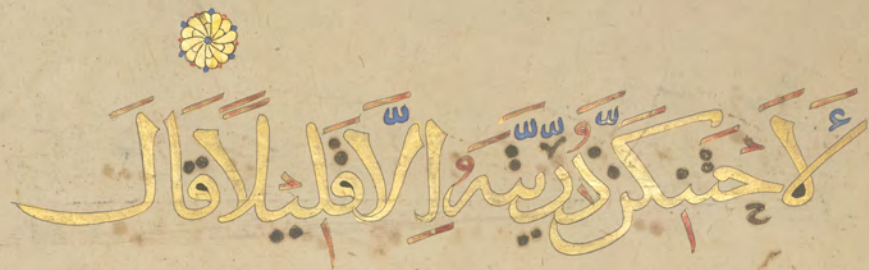 لَأَحْتَنِكَنَّ ذُرِّيَّتَهُ إِلَّا قَلِيلًا قَالَ